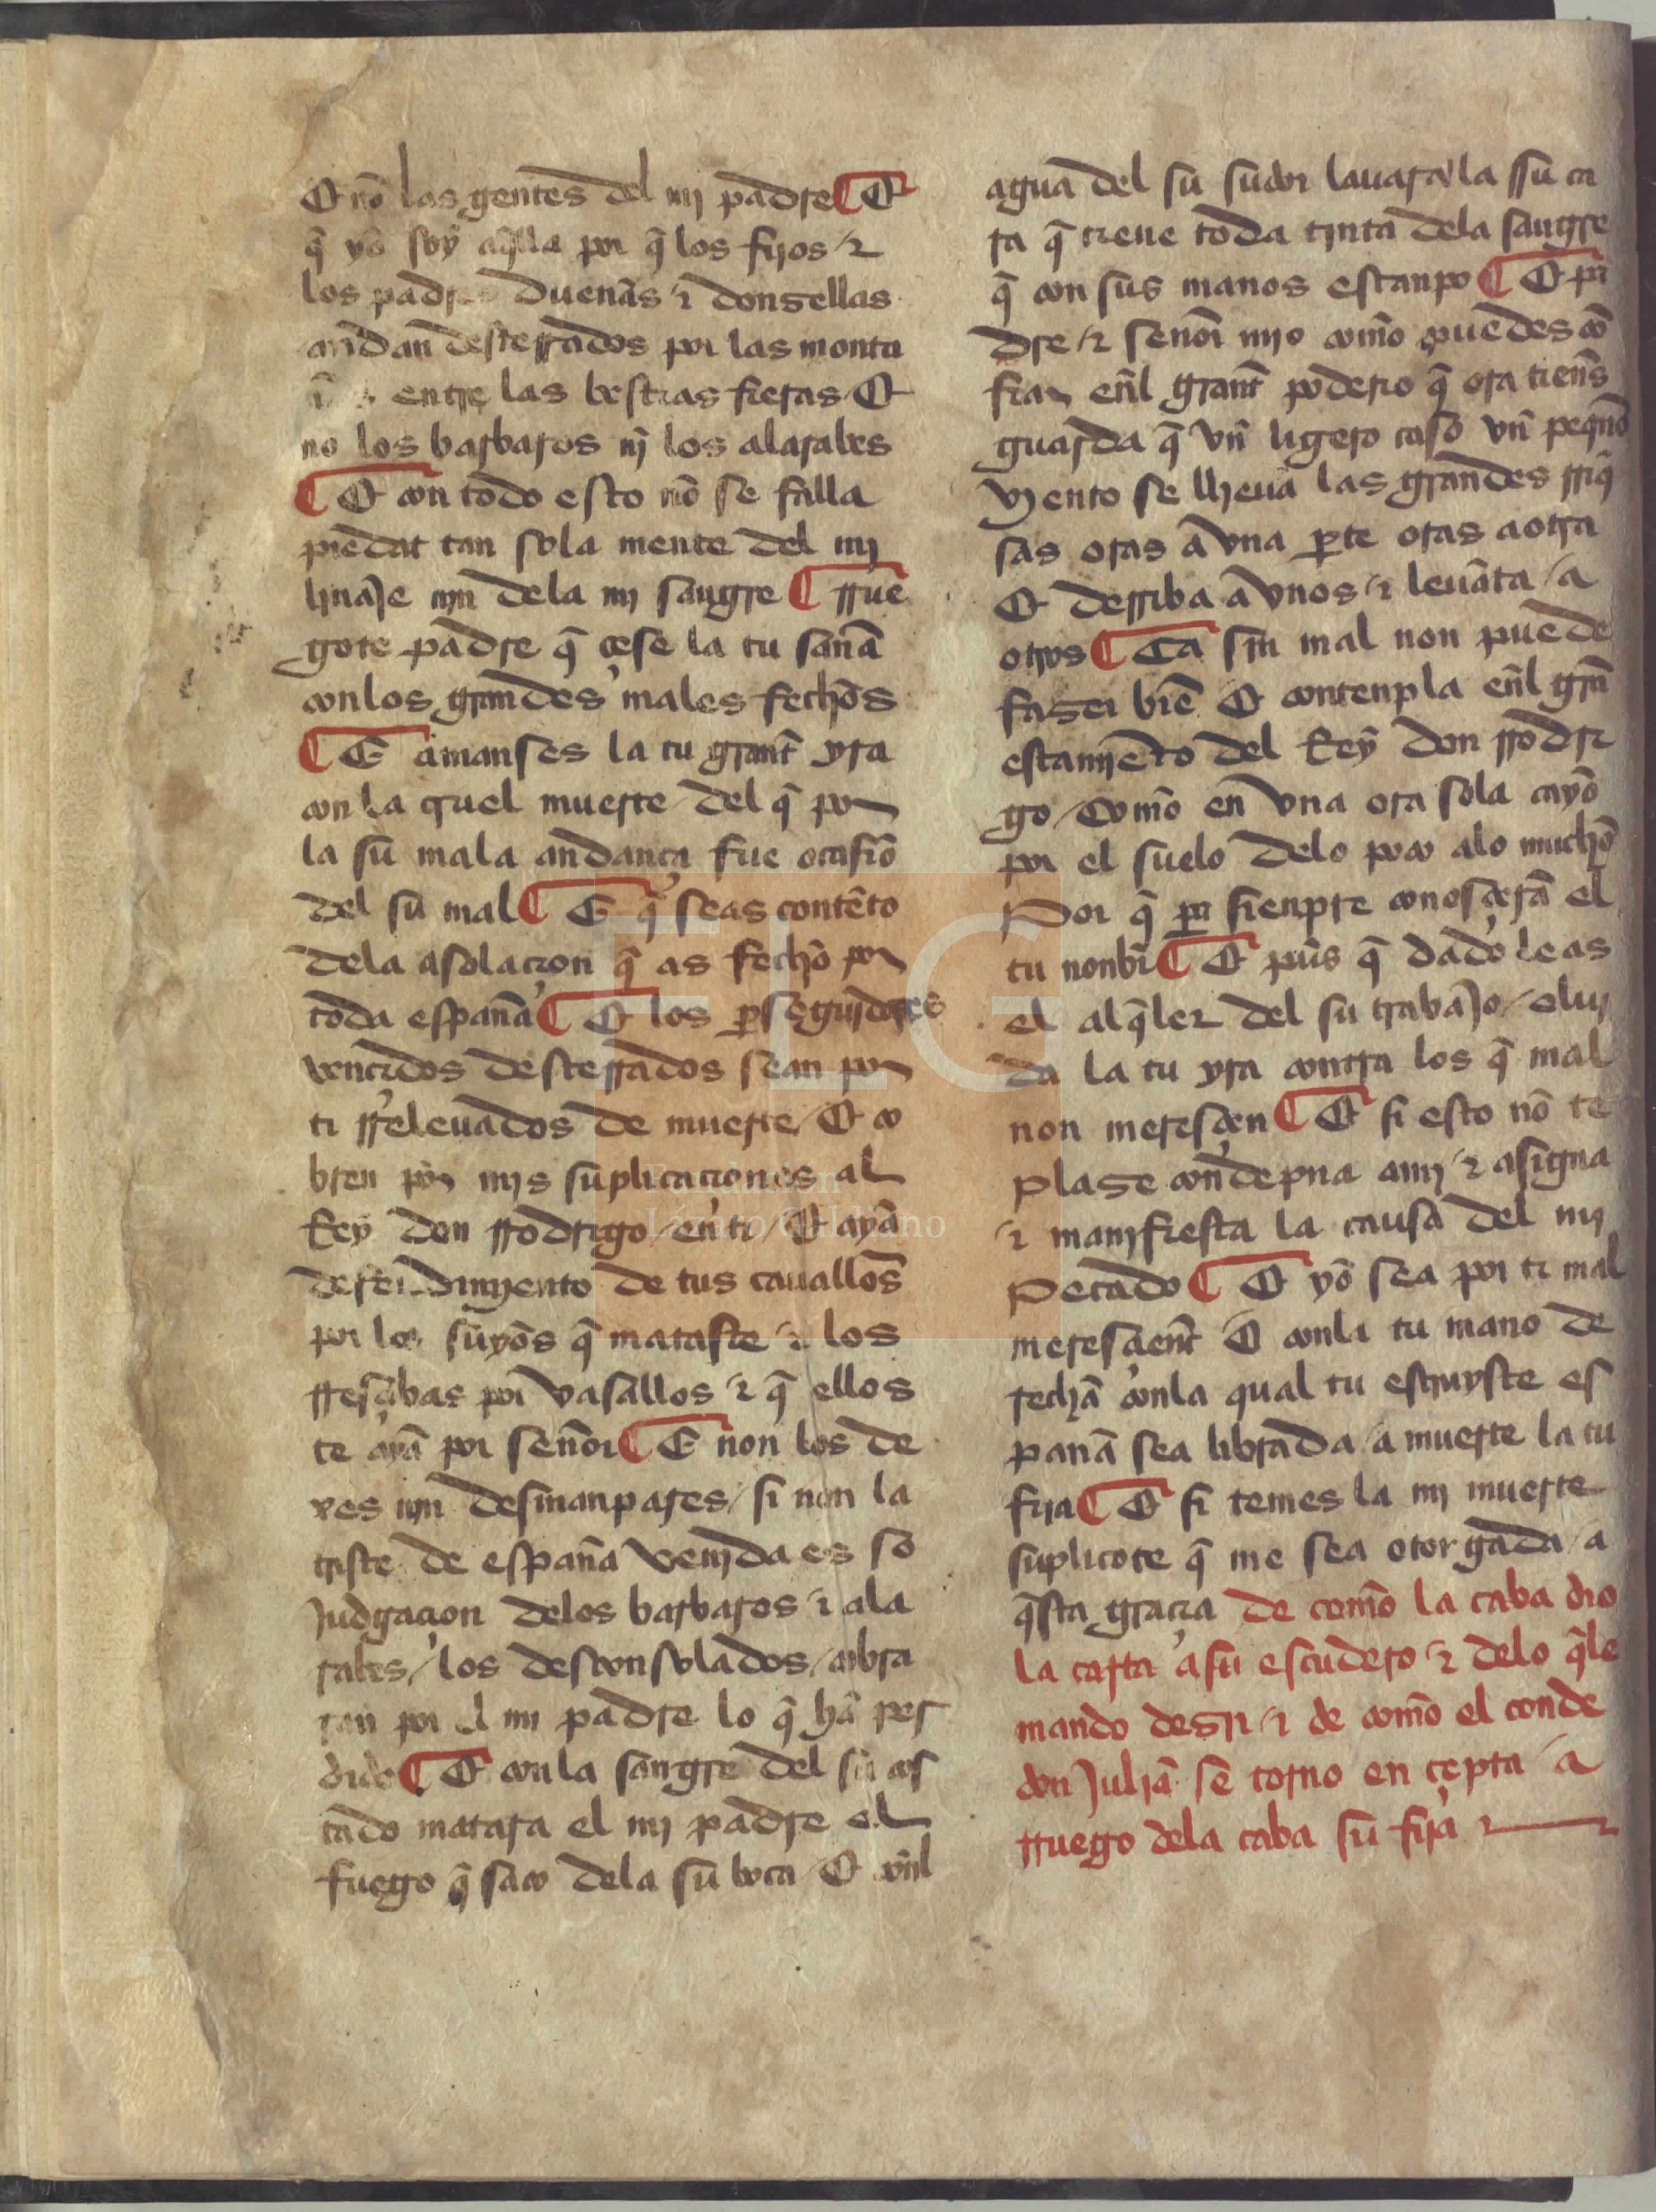 E nō las gentes del mj padre ¶ E
q̄ yo soy aq̄lla por q̄ los fijos /⁊
los padres dueñas ⁊ donsellas
andan desterrados por las monta
entre las bestias fieras E
no los barbaros nj̄ los alarabes
¶ E con todo esto nō se falla
piedat tan sola mente del mj
linaje njn dela mj sangre ¶ rrue
gote padre q̄ çese la tu saña
con los grandes males fechos
¶ E amanses la tu grant̄ yra
con la cruel muerte del q̄ por
la su mala andança fue ocasiō
del su mal ¶ E q̄ seas contēto
dela asolaçion q̄ as fecho por
toda españa ¶ E los ꝑseguidores
vençidos desterrados sean por
ti rreleuados de muerte / E co
bren por mjs suplicaçiones al
Rey don rrodrigo / en ti / E ayā
defendimjento de tus cauallos̄
por los suyos q̄ mataste /⁊ los
rresçibas por vasallos /⁊ q̄ ellos
te ayā por señor ¶ E non los de
xes njn desmanpares / si non la
triste de españa venjda es so
judgaçion delos barbaros ⁊ ala
rabes / los desconsolados / cobra
ran por el mj padre lo q̄ hā per
dido ¶ E conla sangre del su cos
tado matara el mj padre el
fuego q̄ saco dela su boca / E cōnl
agua del su sudor lauara la ssu ca
ra q̄ tiene toda tinta dela sangre
q̄ con sus manos estanpo ¶ E pa
dre /⁊ señor mjo comō puedes cō
fiar eñl grant̄ poderio q̄ ora tienes̄
guarda q̄ vn̄ ligero caso vn̄ peq̄no
vjento se llieua las grandes rriq̄
sas oras a vna ꝑte oras a otra
E derriba a vnos /⁊ leuāta / a
otros ¶ Ca sin mal non puede
faser biē E contenpla eñl gran̄
estamjēto del Rey don rrodri
go / Comō en vna ora sola cayo
por el suelo delo poco alo mucho
Por q̄ pa sienpre conosçerā el
tu nonbr̄ ¶ E pus̄ q̄ dado le as
el alq̄ler del su trabajo / oluj
da la tu yra contra los q̄ mal
non meresçen ¶ E si esto nō te
plase condepna amj /⁊ asigna
/⁊ manifiesta la causa del mj
pecado ¶ E yo sea por ti mal
meresçient̄ E conla tu mano de
recha conla qual tu estruyste es
paña sea librada / a muerte la tu
fija ¶ E si temes la mj muerte
suplicote q̄ me sea otorgada / a
q̄sta graçia de comō la caba dio
la carta a su escudero /⁊ delo q̄le
mando desir /⁊ de comō el conde
don juliā se torno en çepta / a
rruego dela caba su fija ⁊
Fundación
Lázaro Galdiano
FLG